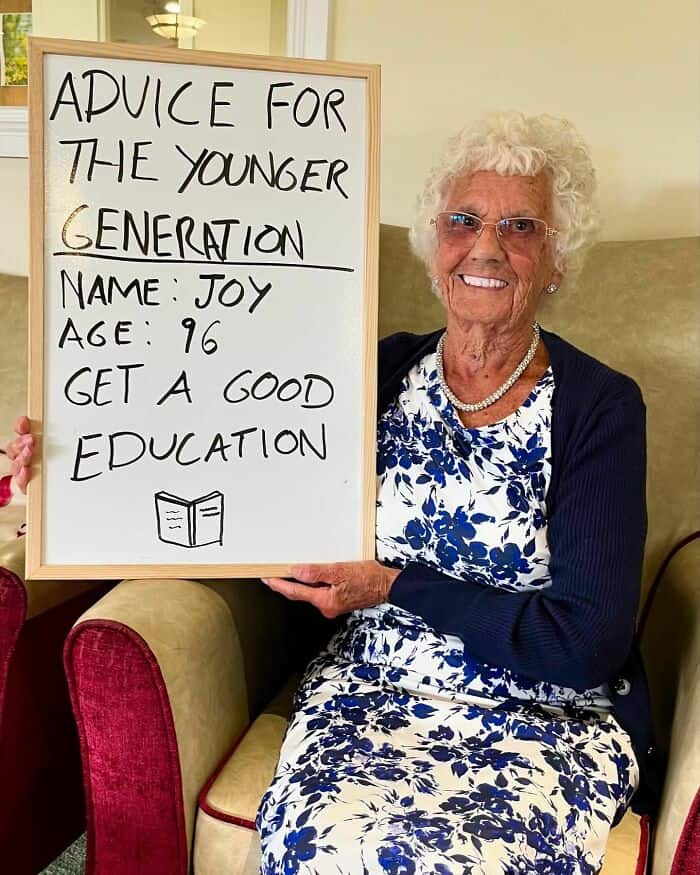 ADVICE FOR
THE YOUNGER
GENERATION
NAME: JOY
AGE: 96
GET A GOOD
EDUCATION